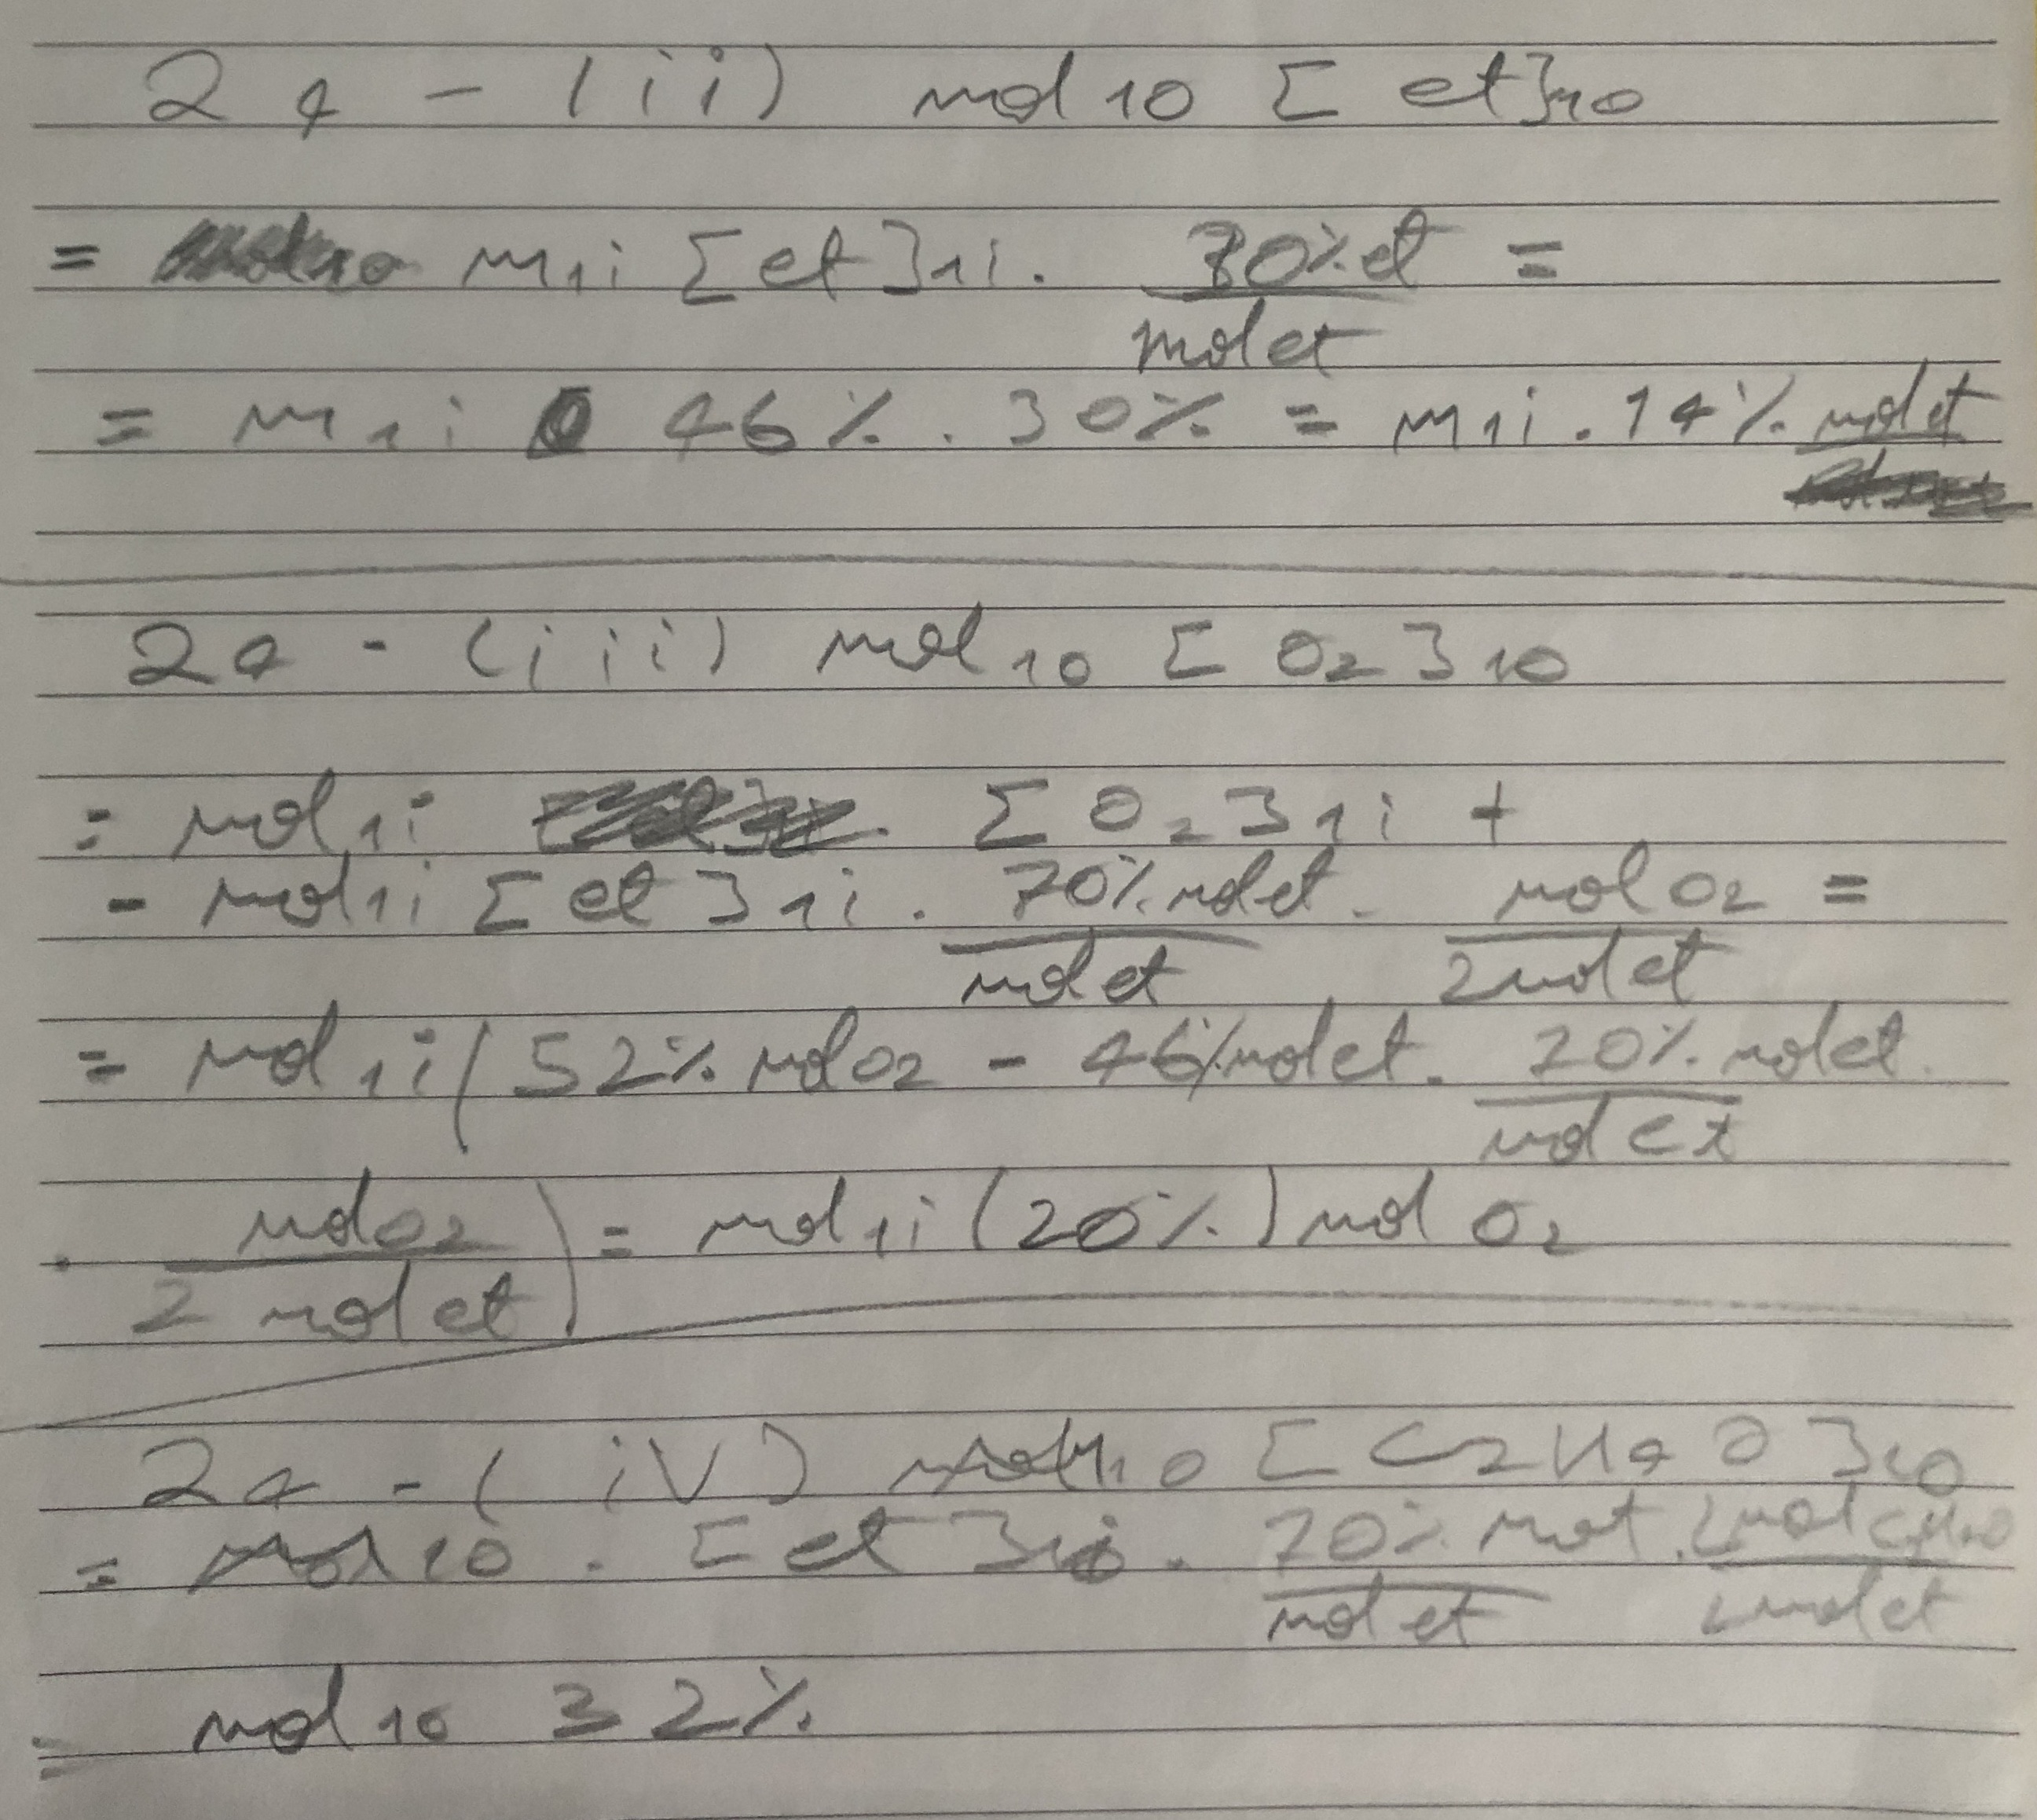 2a - (ii) mol 10 [et]10
= m1i [et]1i . 30% et =
mol et
= m1i 46% . 30% = m1i . 14% mol et
2a - (iii) mol10 [O2]10
= mol1i . [O2]1i +
- mol1i [et]1i . 70% mol et . mol O2 =
mol et 2 mol et
= mol1i (52% mol O2 - 46% mol et . 70% mol et .
mol et
. mol O2 ) = mol1i (20%) mol O2
2 mol et
2a - (iv) mol10 [C2H4O]10
= mol10 . [et]1i . 70% mol et . 2 mol C2H4O
mol et 2 mol et
= mol10 32%